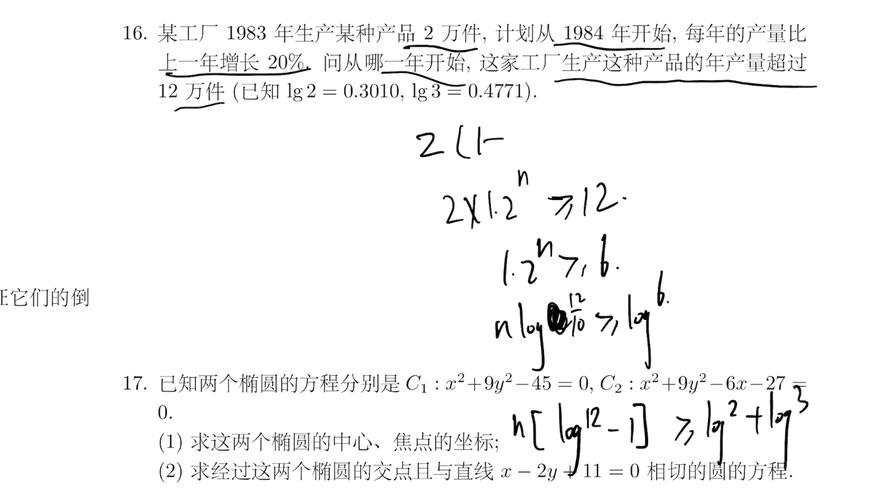 16. 某工厂 1983 年生产某种产品 2 万件, 计划从 1984 年开始, 每年的产量比
上一年增长 20%. 问从哪一年开始, 这家工厂生产这种产品的年产量超过
12 万件 (已知 lg 2 = 0.3010, lg 3 = 0.4771).
2 (1-
2×1.2ⁿ ⩾12.
1.2ⁿ ⩾ 6.
证它们的倒
n log 12/10 ⩾ log 6.
17. 已知两个椭圆的方程分别是 C₁ : x²+9y²−45 = 0, C₂ : x²+9y²−6x−27 =
0.
n[ log12 − 1] ⩾ log2 + log3
(1) 求这两个椭圆的中心、焦点的坐标;
(2) 求经过这两个椭圆的交点且与直线 x − 2y + 11 = 0 相切的圆的方程.